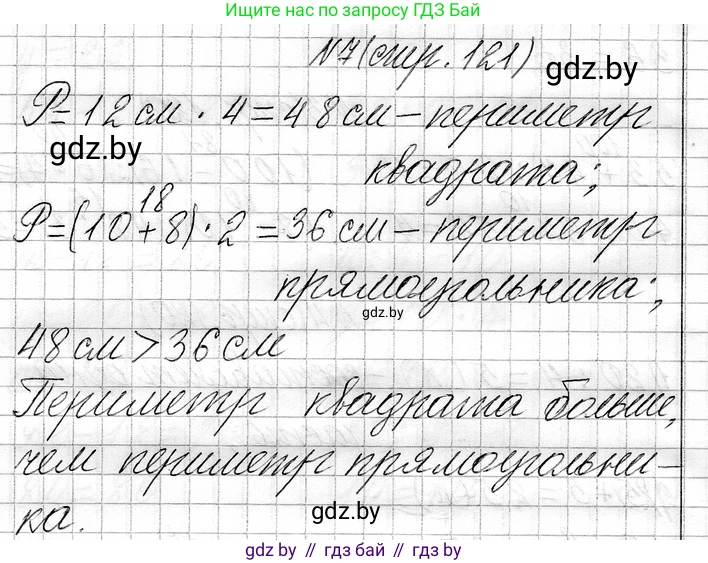 Ищите нас по запросу ГДЗ Бай
N7(стр. 121)
gdz.by
P=12см · 4=48см – периметр
gdz.by
квадрата;
18
P=(10+8)·2=36см – периметр
прямоугольника;
gdz.by
48см>36см
Периметр квадрата больше,
чем периметр прямоугольни-
ка.
gdz.by
gdz.by // гдз бай // гдз.бел